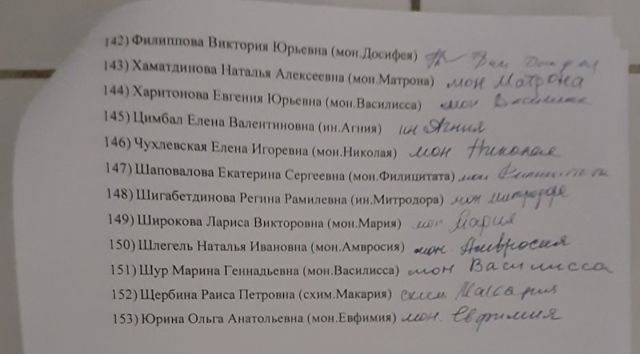 142) Филиппова Виктория Юрьевна (мон.Досифея)
143) Хаматдинова Наталья Алексеевна (мон.Матрона) мон Матрона
144) Харитонова Евгения Юрьевна (мон.Василисса) мон Василисса
145) Цимбал Елена Валентиновна (ин.Агния) ин Агния
146) Чухлевская Елена Игоревна (мон.Николая) мон Николая
147) Шаповалова Екатерина Сергеевна (мон.Филицитата) мон
148) Шигабетдинова Регина Рамилевна (ин.Митродора) мон митродора
149) Широкова Лариса Викторовна (мон.Мария) мон Мария
150) Шлегель Наталья Ивановна (мон.Амвросия) мон. Амвросия
151) Шур Марина Геннадьевна (мон.Василисса) мон Василисса
152) Щербина Раиса Петровна (схим.Макария) схим Макария
153) Юрина Ольга Анатольевна (мон.Евфимия) мон. Евфимия